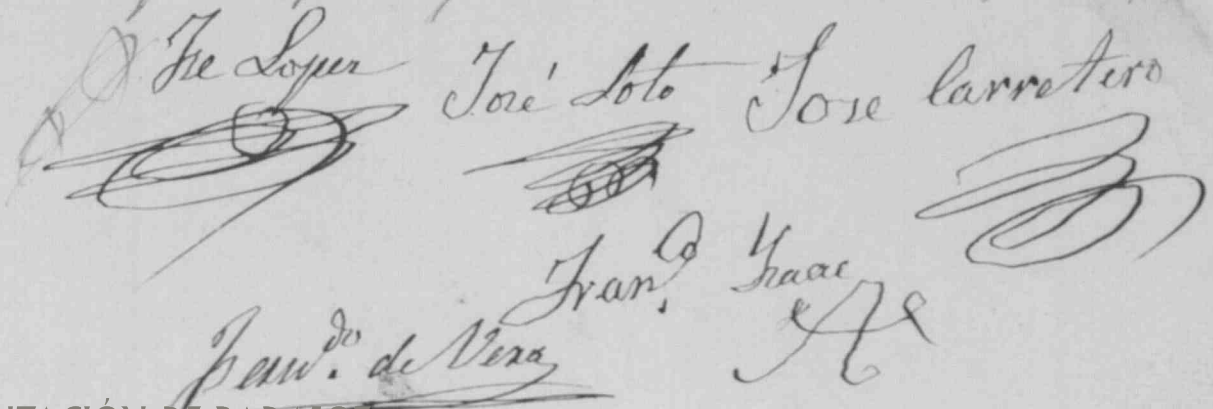 Fre Lopez José Soto Jose Carretero
Fran.co Ysaac
Fern.do de Vera